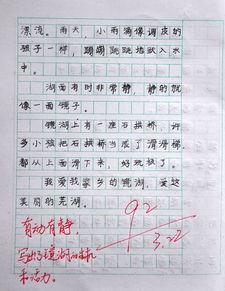 漂流。雨天，小雨滴像调皮的
孩子一样，蹦蹦跳跳地跃入水
中。
湖面有时非常静，静的就
像一面镜子。
镜湖上有一座石拱桥，许
多小孩把石拱桥当成了滑滑梯，
都从上面滑下来，好玩极了。
我爱我家乡的镜湖，爱这
美丽的芜湖。
92
3.22
有动有静，
写出了镜湖的
和活力。